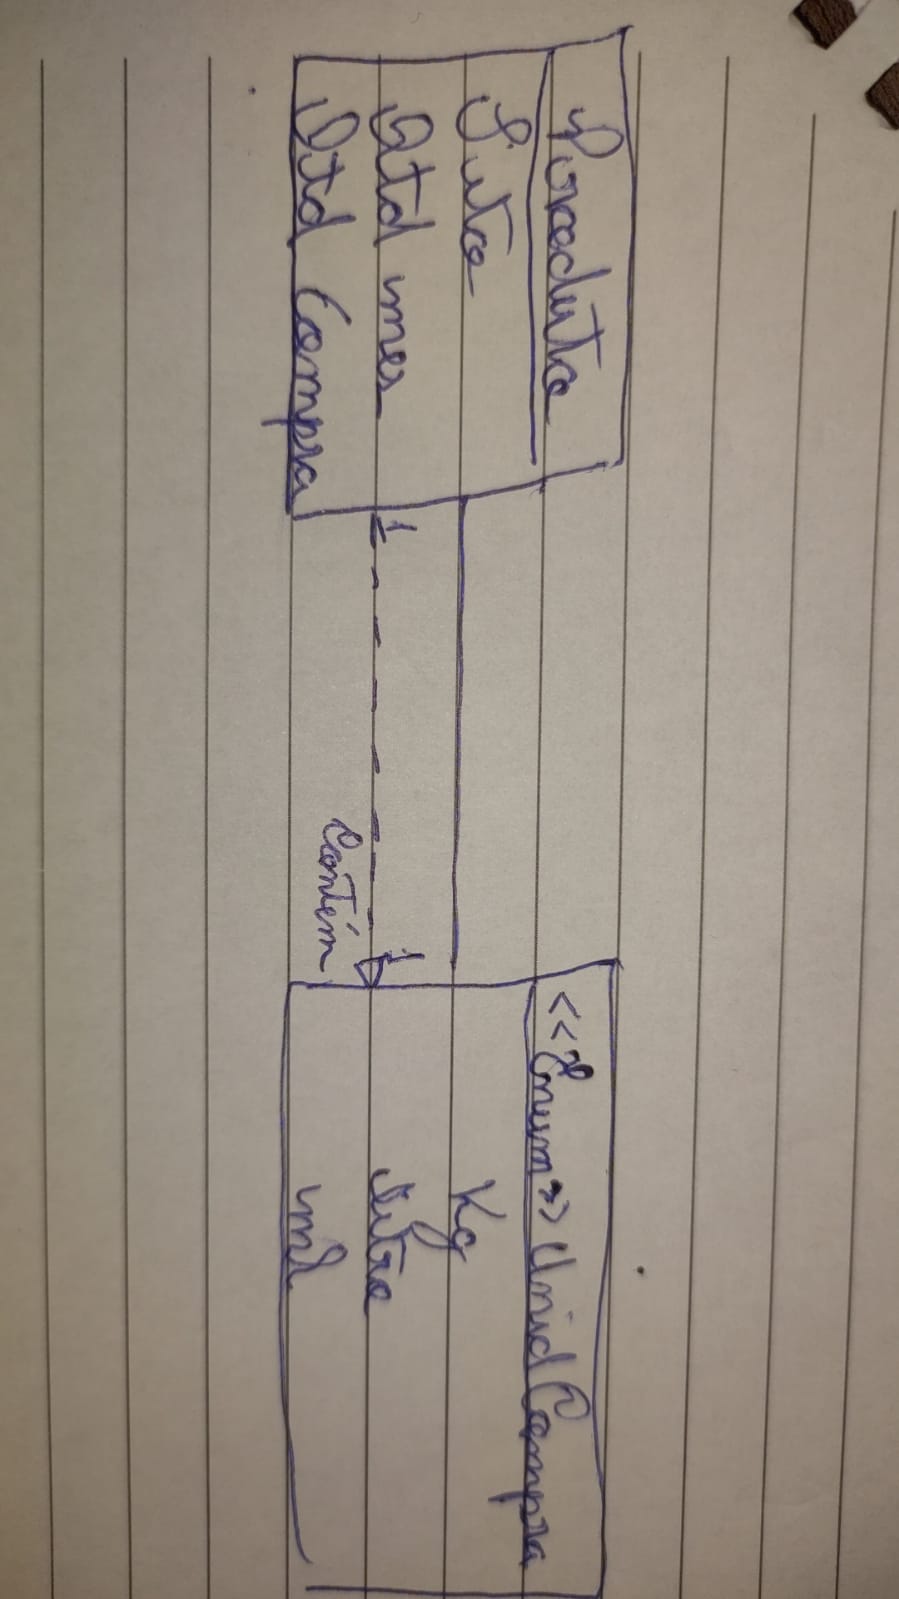 Produto
Qtd mes
Qtd Compra
1
1
Contém
<<Enum>> Unid Compra
Kg
litro
ml